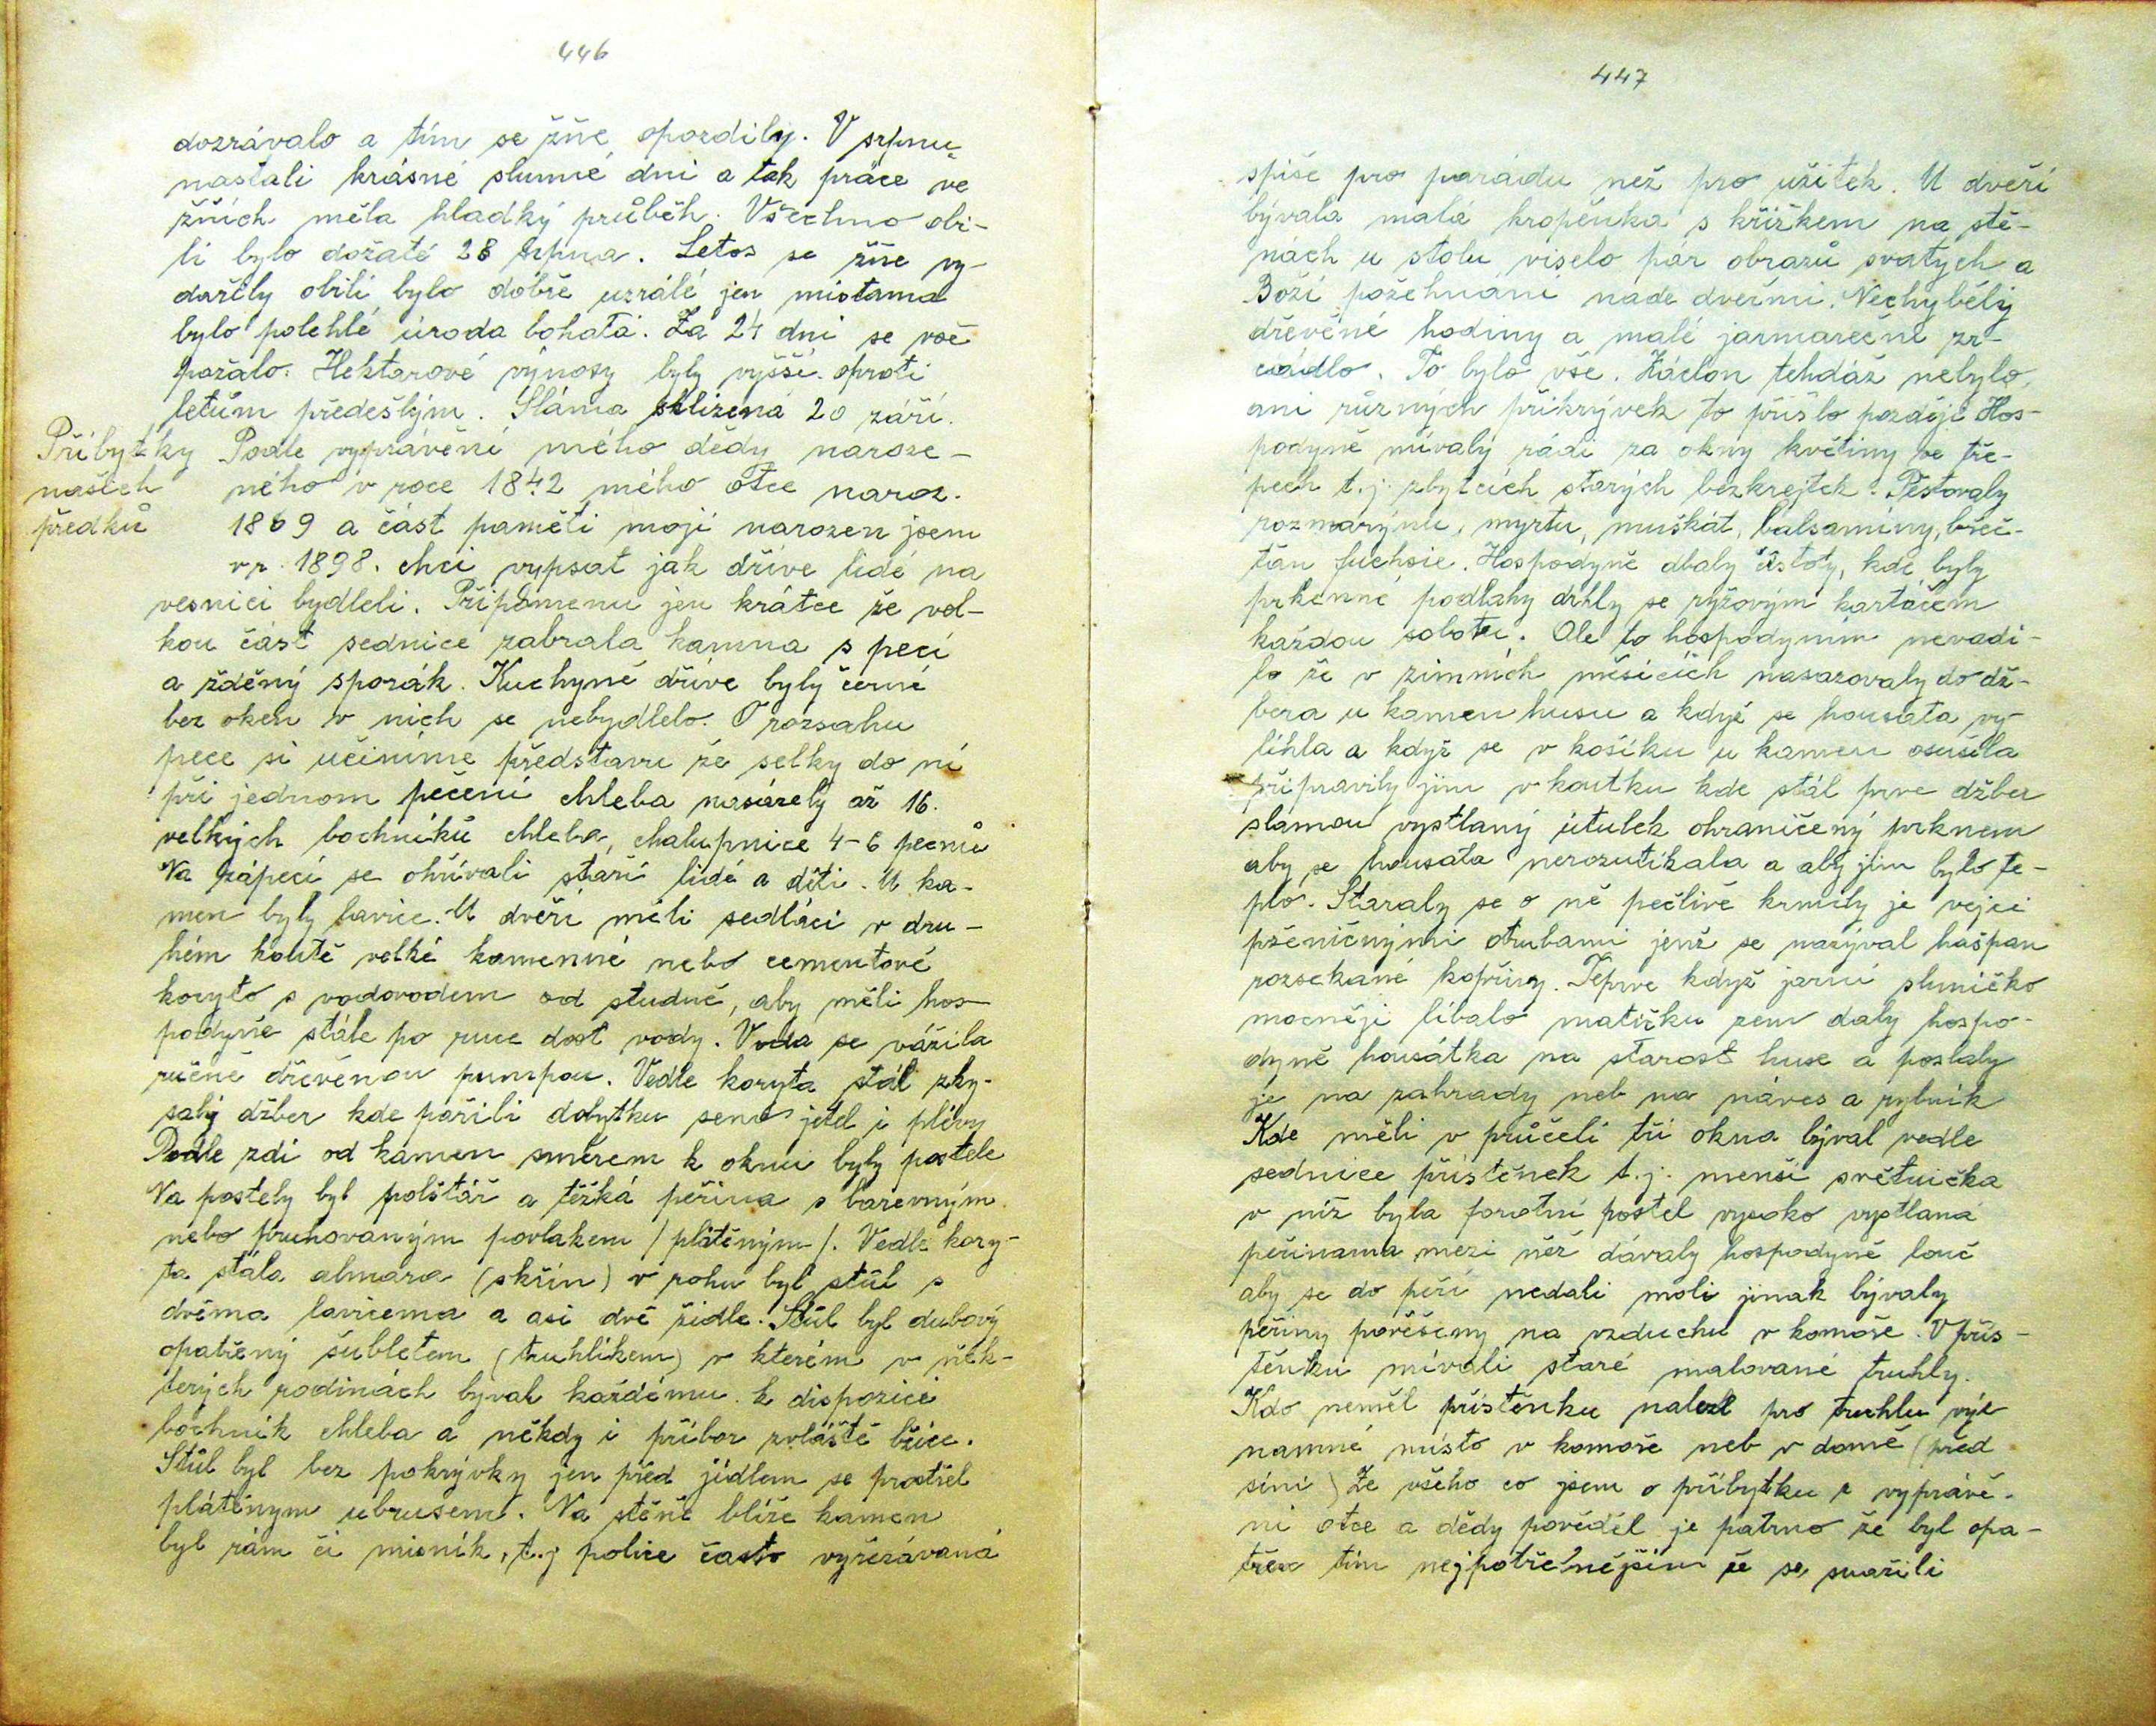 446
dozrávalo a tím se žňe opozdily. V srpnu
nastali krásné slunné dni a tak práce ve
žních měla hladký průběh. Všechno obi-
lí bylo dožaté 28 srpna. Letos se žňe vy-
dařily obilí bylo dobře uzrálé jen místama
bylo polehlé úroda bohatá. Za 24 dni se vše
požalo. Hektarové výnosy byly vyšší oproti
letům předešlým. Sláma sklizená 20 září.
Příbytky
našich
předků
Podle vyprávění mého dědy naroze-
ného v roce 1842 mého otce naroz.
1869 a část paměti moji narozen jsem
v r. 1898. chci vypsat jak dříve lidé na
vesnici bydleli. Připomenu jen krátce že vel-
kou část sednice zabrala kamna s pecí
a zděný sporák. Kuchyně dříve byly černé
bez oken v nich se nebydlelo. O rozsahu
pece si učiníme představu že selky do ní
při jednom pečení chleba nasázely až 16.
velkých bochníků chleba, chalupnice 4-6 pecnů
Na zápecí se ohřívali staří lidé a děti. U ka-
men byly lavice. U dveří měli sedláci v dru-
hém koutě velké kamenné nebo cementové
koryto s vodovodem od studně, aby měli hos-
podyně stále po ruce dost vody. Voda se vážila
ručně dřevěnou pumpou. Vedle koryta stál zky-
salý džber kde pařili dobytku seno jetel i plevy
Podle zdi od kamen směrem k oknu byly postele
Na postely byl polštář a těžká peřina s barevným
nebo pruhovaným povlakem / plátěným /. Vedle kory-
ta stála almara (skřín) v rohu byl stůl s
dvěma lavicema a asi dvě židle. Stůl byl dubový
opatřený šubletem (truhlíkem) v kterém v něk-
terých rodinách býval každému k dispozici
bochník chleba a někdy i příbor zvláště lžíce.
Stůl byl bez pokrývky jen před jídlem se prostřel
plátěnym ubrusem. Na stěně blíže kamen
byl rám či misník, t.j police často vyřezávaná
447
spíše pro parádu než pro užitek. U dveří
bývala malá kropěnka s křížkem na stě-
nách u stolu viselo pár obrazů svatých a
Boží požehnání nade dveřmi. Nechyběly
dřevěné hodiny a malé jarmareční zr-
cádlo. To bylo vše. Záclon tehdáž nebylo,
ani různých přikrývek to přišlo později Hos-
podyně mívaly rádi za okny květiny ve tře-
pech t.j. zbytcích starých bezkrejtek. Pěstovaly
rozmarýnu, myrtu, muškát, balsamíny, břeč-
tan fuchsie. Hospodyně dbaly čistoty, kde byly
prkenné podlahy drhly se ryžovým kartáčem
každou sobotu. Ale to hospodyním nevadi-
lo že v zimních měsících nasazovaly do dž-
bera u kamen husu a když se housata vy-
líhla a když se v košíku u kamen osušila
připravily jim v koutku kde stál prve džber
slamou vystlaný útulek ohraničený prknem
aby se housata nerozutíkala a aby jim bylo te-
plo. Staraly se o ně pečlivě krmily je vejci
pšeničnými otrubami jenž se nazýval hašpan
rozsekané kopřivy. Teprve když jarní sluníčko
mocněji líbalo matičku zem daly hospo-
dyně housátka na starost huse a poslaly
je na zahrady neb na náves a rybník
Kde měli v průčelí tři okna býval vedle
sednice přístěnek t.j. menší světnička
v níž byla forotní postel vysoko vystlaná
peřinama mezi něž dávaly hospodyně louč
aby se do peří nedali moli jinak bývaly
peřiny pověšeny na vzduchu v komoře. V přís-
těnku mívali staré malované truhly.
Kdo neměl přístěnku nalezl pro truhlu výz
namné místo v komoře neb v domě (před
síni) Ze všeho co jsem o příbytku z vyprávě-
ní otce a dědy pověděl je patrno že byl opa-
třen tím nejpotřebnějším že se snažili